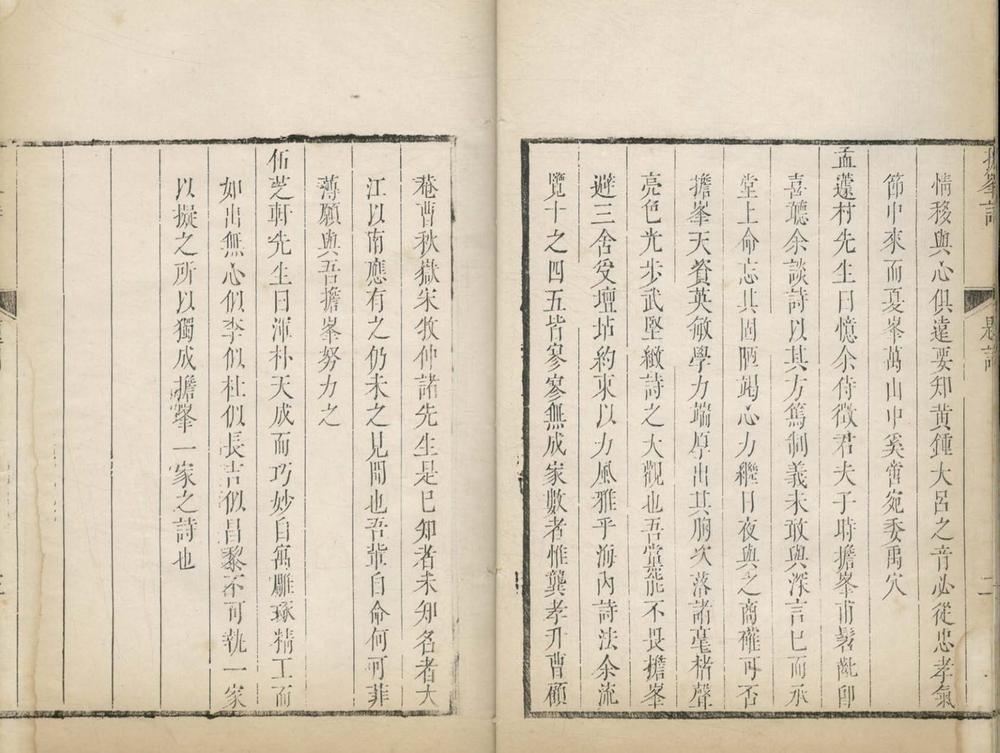 擔峯詩
題詞
二
情移與心俱遠要知黃鍾大呂之音必從忠孝氣
節中來而夏峯萬山中奚啻宛委禹穴
孟蘧村先生曰憶余侍徵君夫子時擔峯甫髫齔卽
喜聽余談詩以其方篤制義未敢與深言已而承
堂上命忘其固陋竭心力繼日夜與之商確可否
擔峯天資英敏學力端厚出其胸次落諸毫楮聲
亮色光步武堅緻詩之大觀也吾黨能不畏擔峯
避三舍受壇坫約束以力風雅乎海內詩法余流
覽十之四五皆寥寥無成家數者惟龔孝升曹顧
菴曹秋嶽宋牧仲諸先生是已知者未知名者大
江以南應有之仍未之見聞也吾輩自命何可菲
薄願與吾擔峯努力之
伍芝軒先生曰渾朴天成而巧妙自寓雕琢精工而
如出無心似李似杜似長吉似昌黎不可執一家
以擬之所以獨成擔峯一家之詩也